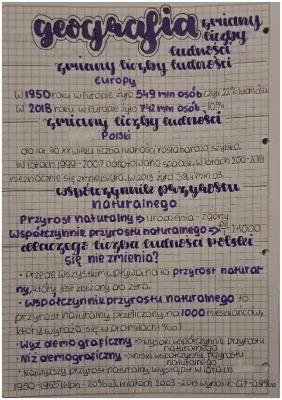 geografia zmiany
liczby
ludności
zmiany liczby ludności
Europy
W 1950 roku w Europie żyło 549 mln osób czyli 22% ludności
W 2018 roku w Europie żyło 742 mln osób - 10%
zmiany liczby ludności
Polski
do lat 90. XX wieku liczba ludności rosła bardzo szybko.
W latach 1999-2007 odnotowano spadek. W latach 2012-2018
nieznacznie się zmniejszyła. W 2018 żyło 38,4 mln os.
współczynnik przyrostu
naturalnego
Przyrost naturalny => urodzenia - zgony
Współczynnik przyrostu naturalnego => 1000
dlaczego liczba ludności Polski
się nie zmienia?
• Przede wszystkim wpływa na to przyrost natural-
ny, który jest zbliżony do zera.
• Współczynnik przyrostu naturalnego to
przyrost naturalny przeliczony na 1000 mieszkańców,
który wyraża się w promilach (‰)
• Wyż demograficzny => wysoki współczynnik przyrostu
naturalnego
• Niż demograficzny => niski współczynnik przyrostu
naturalnego
• Najwyższy przyrost naturalny wystąpił w latach
1950-1955 (Wpn - 20‰). W latach 2003-2016 wynosił -0,7-0,9‰